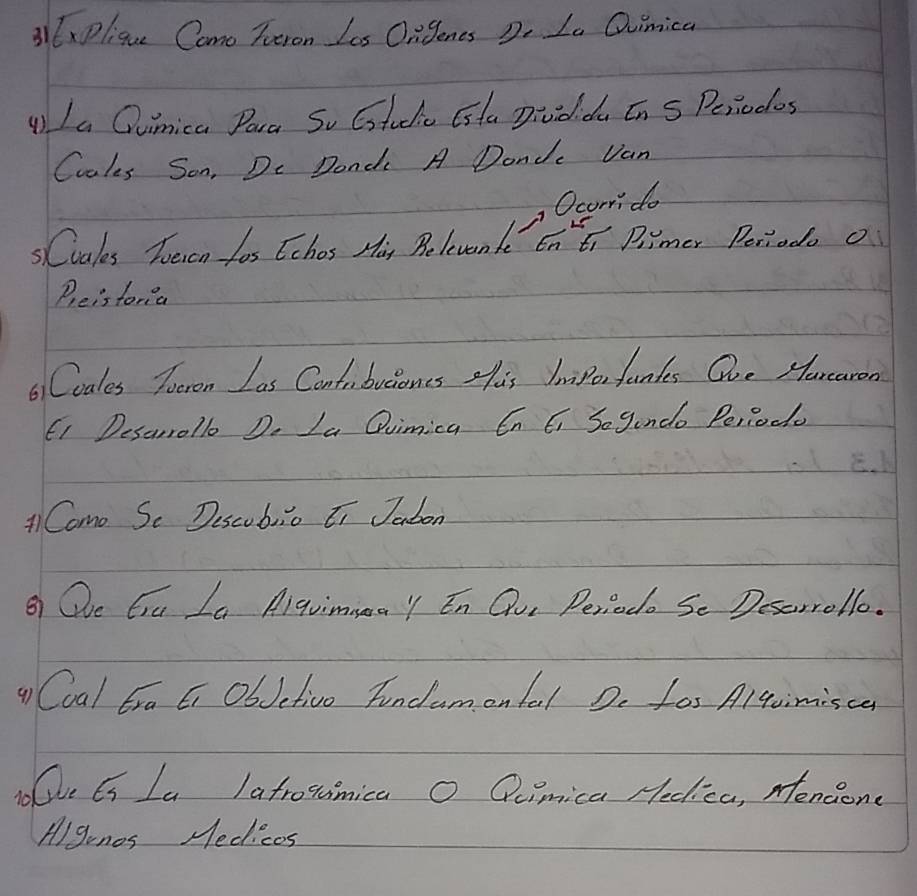 3) Explique Como Fueron Los Origenes De La Quimica
4) La Quimica Para Su Estudio Esta Dividida En 5 Periodos
Cuales Son, De Donde A Donde Van
Ocurrido
5) Cuales Fueron Los Echos Más Relevante En El Primer Periodo O
Preistoria
6) Cuales Fueron Las Contribuciones Más Importantes Que Marcaron
El Desarrollo De La Quimica En El Segundo Periodo
7) Como Se Descubrio El Jabon
8) Que Era La Alquimia Y En Que Periodo Se Desarrollo.
9) Cual Era El Objetivo Fundamental De Los Alquimisca
10) Que Es La Iatroquimica O Quimica Medica, Mencione
Algunos Medicos